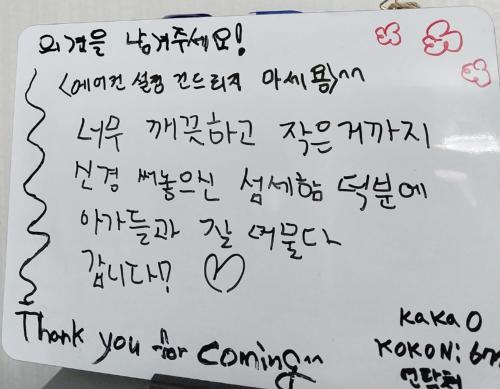 의견을 남겨주세요!
<에어컨 설정 건드리지 마세용>^^
너무 깨끗하고 작은거까지
신경 써놓으신 섬세함 덕분에
아가들과 잘 머물다
갑니다!
Thank you for coming^^
KaKaO
KOKONi
연락처